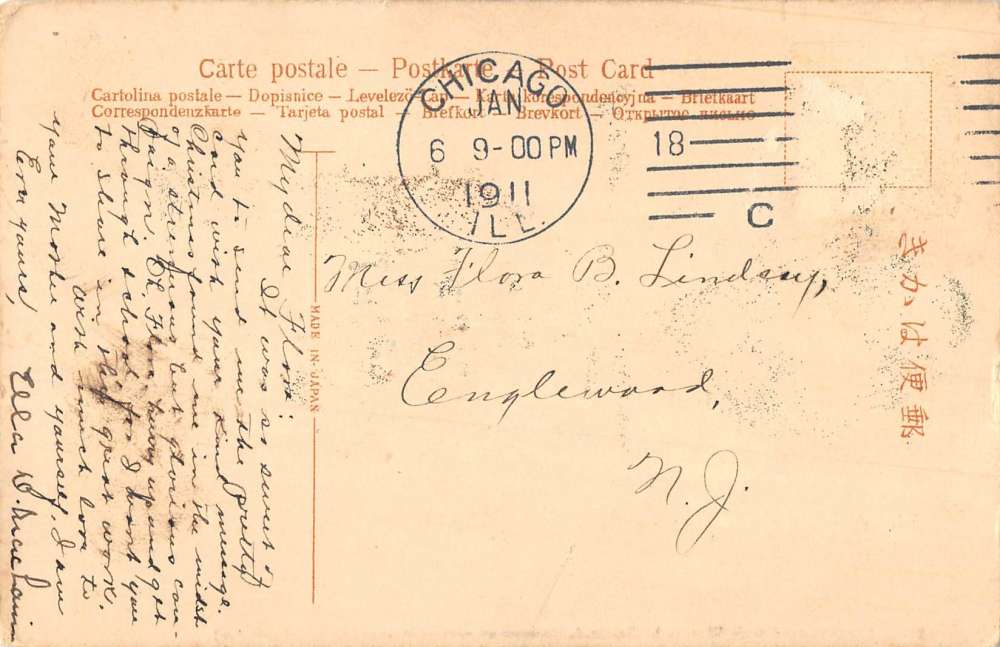 Carte postale — Postkarte — Post Card
Cartolina postale — Dopisnice — Levelező-Lap — Karta korespondencyjna — Briefkaart
Correspondenzkarte — Tarjeta postal — Brefkort — Brevkort — Открытое письмо
CHICAGO
JAN
6 9-00 PM
1911
ILL.
18
C
My dear Flora:
It was so sweet of
you to send me the pretty
card with your kind message.
Christmas found me in the midst
of a strenuous but glorious cam-
paign. Oh, Flora, hurry up and get
through school, for I want you
to share in this great work.
With much love to
your Mother and yourself, I am
Ever yours,
Ella D.
MADE IN JAPAN
Miss Flora B. Lindsay,
Englewood,
N. J.
きかは便郵